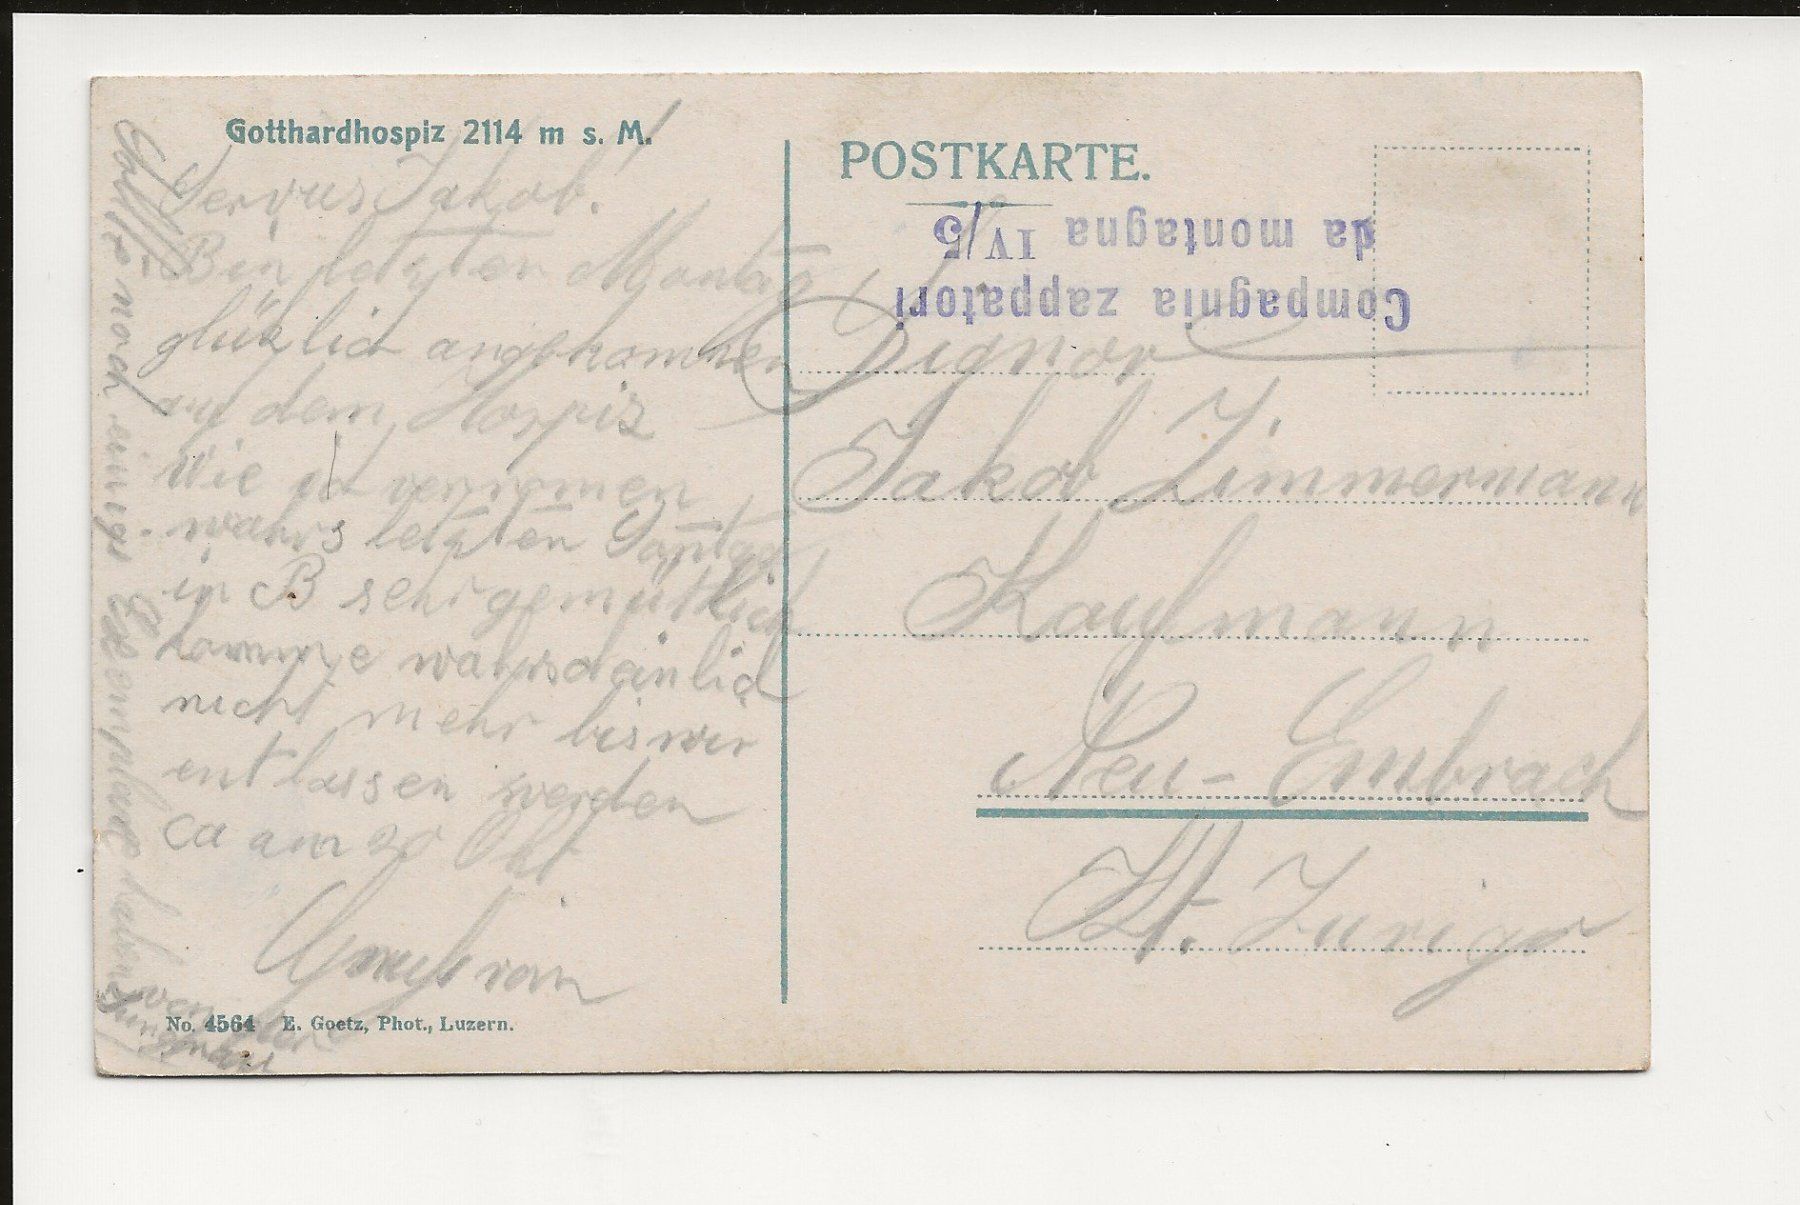 Gotthardhospiz 2114 m s. M.
Servus Jakob!
Bin letzten Montag
glüklich angekommen
auf dem Hospiz
Wie ich vernomen
wahrs letzten Sontag
in B sehr gemütlich
komme wahrscheinlich
nicht mehr bis wir
entlassen werden
ca am 20 Okt
No. 4564 E. Goetz, Phot., Luzern.
noch einige Exemplare haben
von
POSTKARTE.
Compagnia zappatori
da montagna IV/5
Signor
Jakob Zimmermann
Kaufmann
Neu-Embrach
Kt. Zurigo